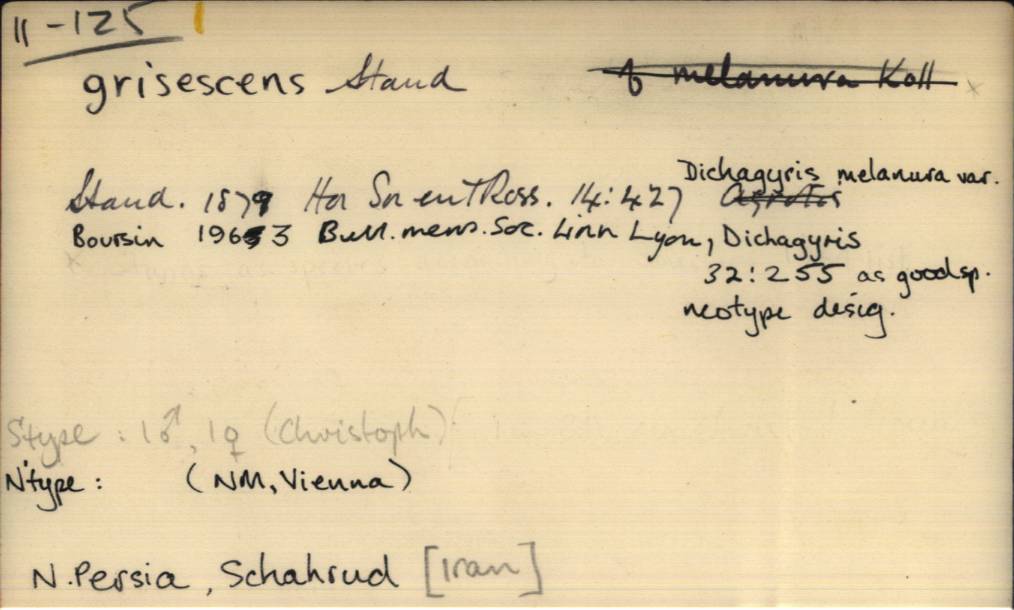 11-125
grisescens Staud
f melanura Koll
Dichagyris melanura var.
Staud. 1879 Hor Soc entRoss. 14:427 Agrotis
Boursin 1963 Bull. mens. Soc. Linn Lyon, Dichagyris
32:255 as good sp.
neotype desig.
Stype : 1♂, 1♀ (Christoph)
N'type : (NM, Vienna)
N. Persia, Schahrud [Iran]